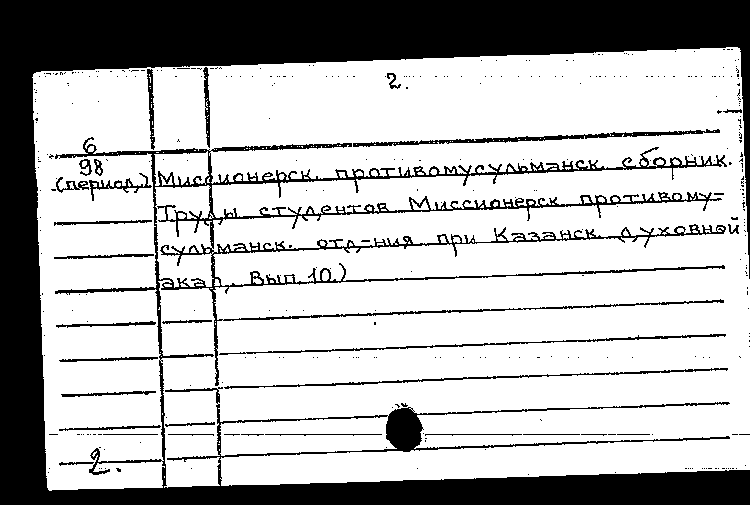 2.
6
98
(период.) Миссионерск. противомусульманск. сборник.
Труды студентов Миссионерск. противому-
сульманск. отд-ния при Казанск. духовной
акад. Вып. 10.)
2.